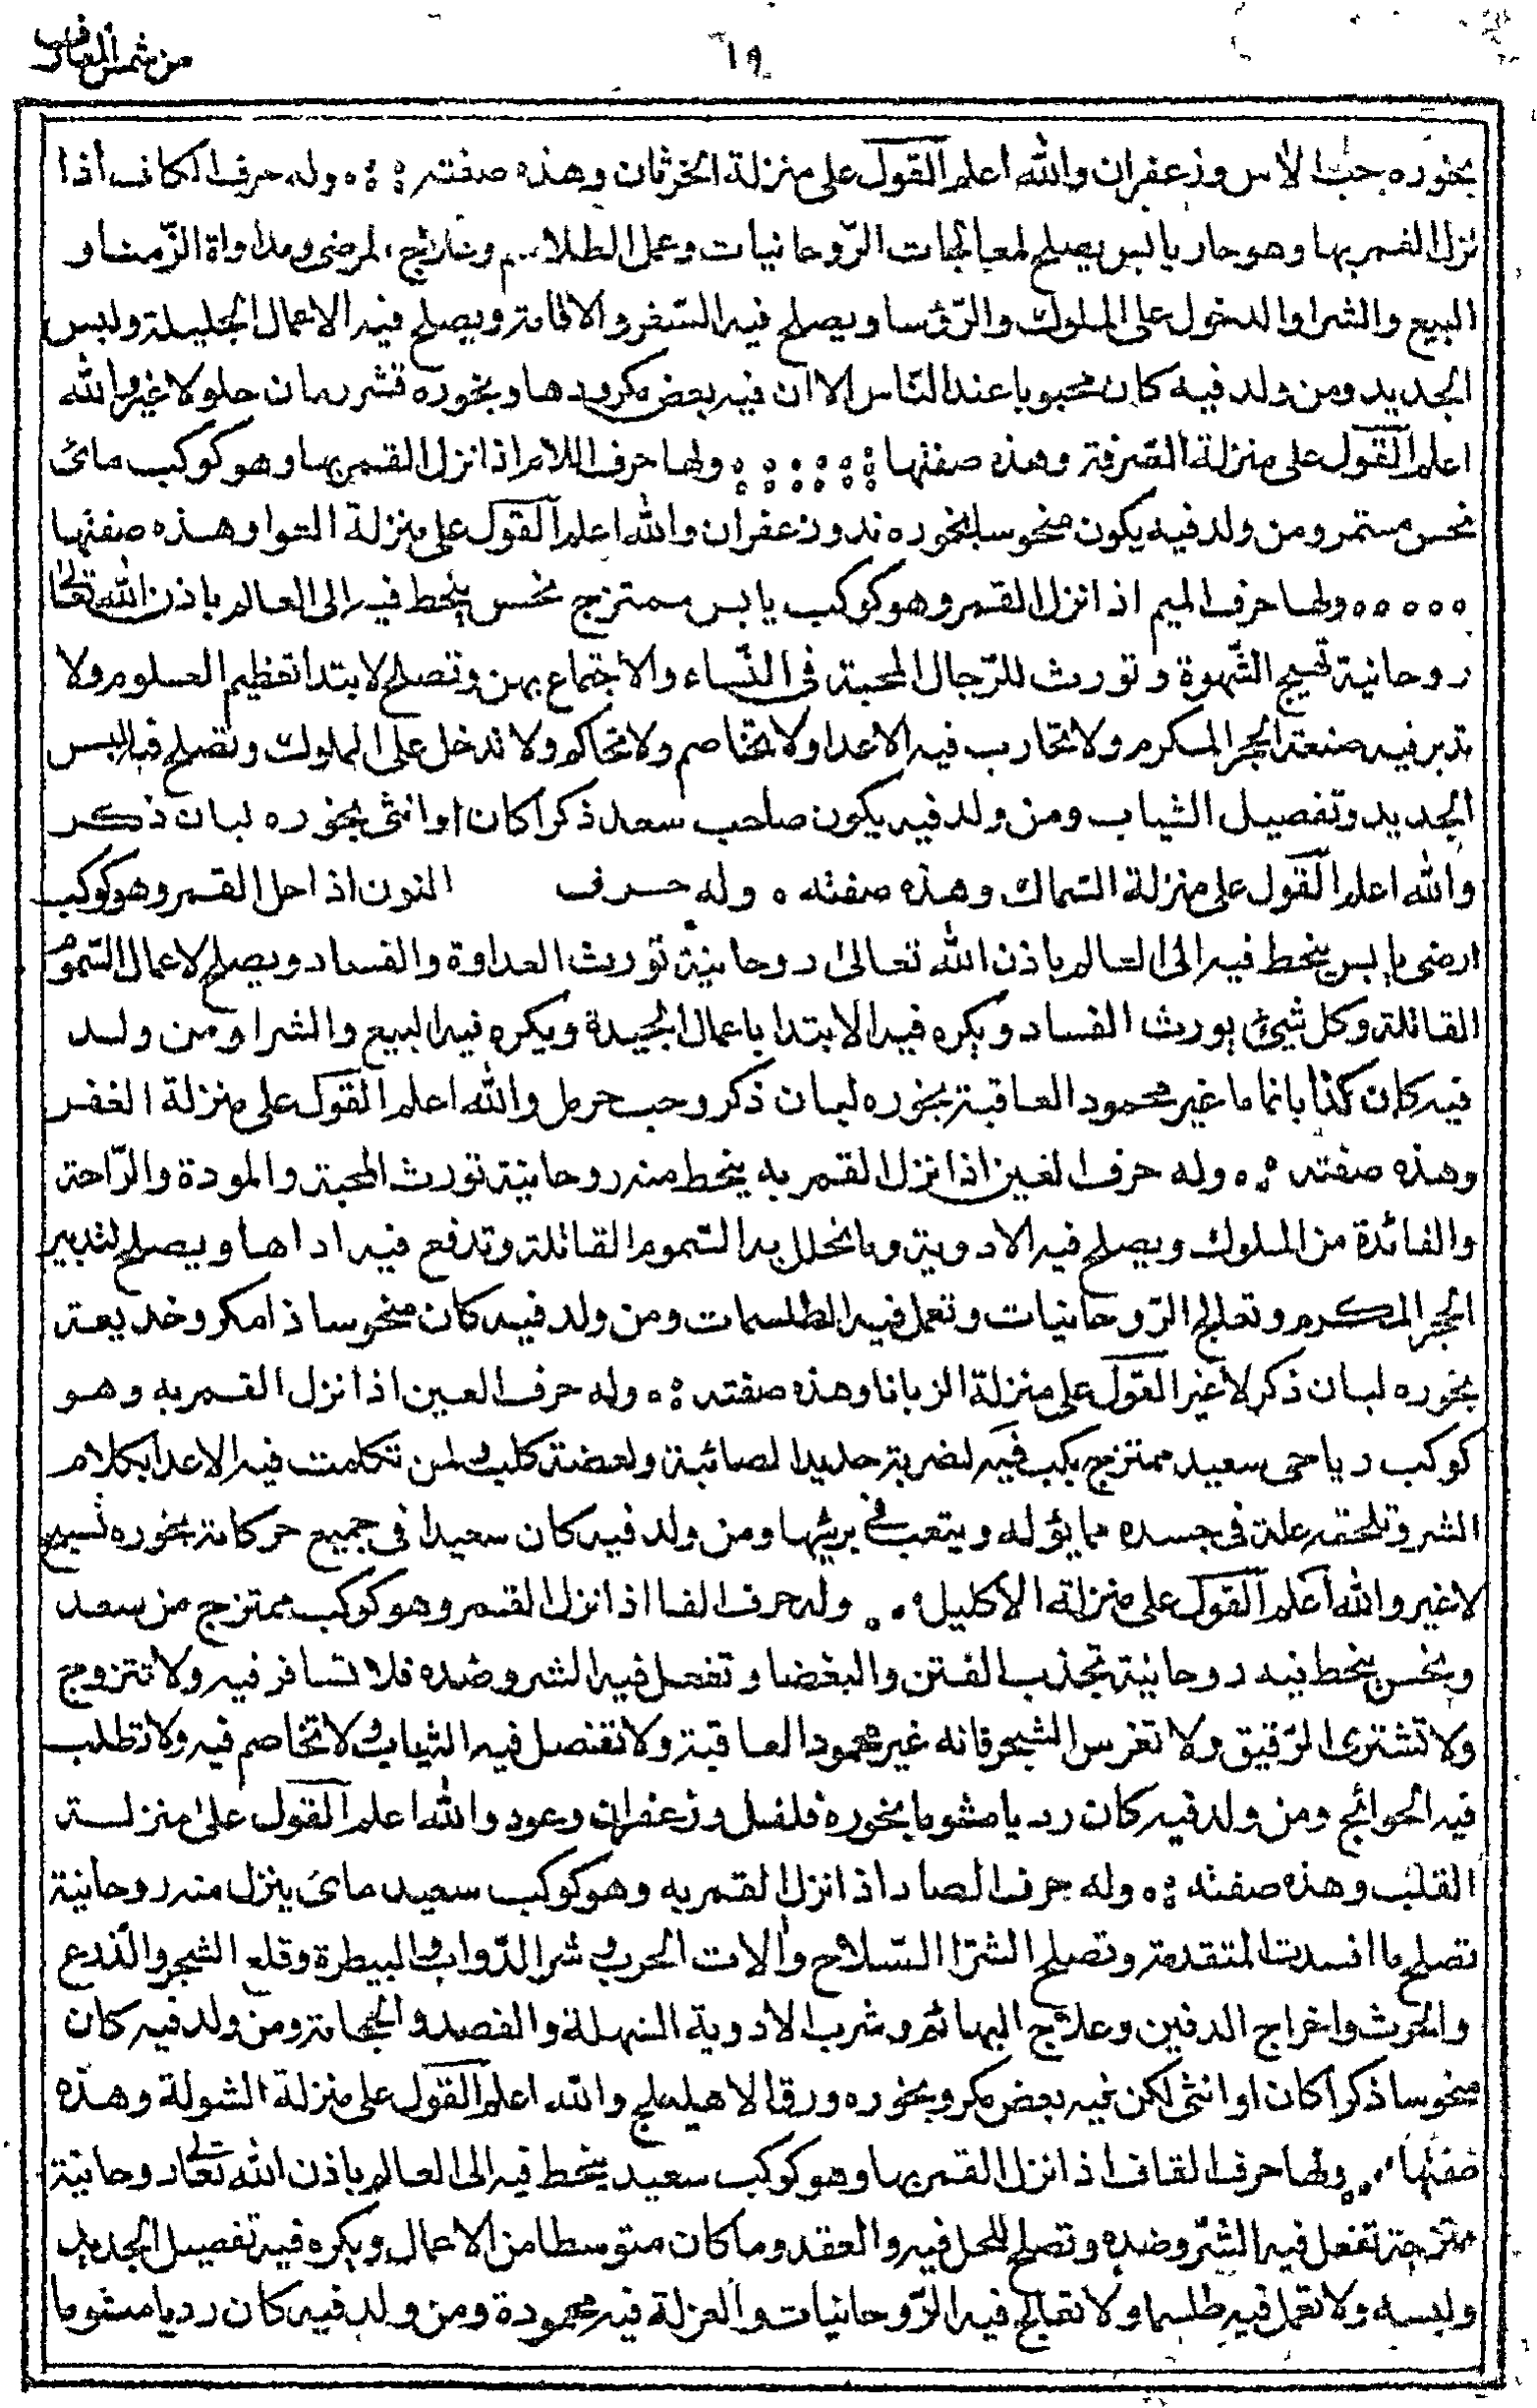 من شمس المعارف
١٩
بخوره حب الاس وزعفران والله اعلم القول على منزلة الخرثان وهذه صفته وله حرف الكاف اذا
نزل القمر بها وهو حار يابس يصلح لمعالجات الروحانيات وعمل الطلاسم وعلاج المرضى ومداواة الزمنا و
البيع والشرا والدخول على الملوك والرؤسا ويصلح فيه السفر والاقامة ويصلح فيه الاعمال الجليلة ولبس
الجديد ومن ولد فيه كان محبوبا عند الناس الا ان فيه بعض مكر ودها وبخوره قشر رمان حلو لا غير والله
اعلم القول على منزلة الصرفة وهذه صفتها ولها حرف اللام اذا نزل القمر بها وهو كوكب مائى
نحس مستمر ومن ولد فيه يكون منحوسا بخوره ند وزعفران والله اعلم القول على منزلة العوا وهذه صفتها
ه ه ه ه ه ولها حرف الميم اذا نزل القمر وهو كوكب يابس ممتزج نحس ينحط فيه الى العالم باذن الله تعالى
روحانية تهيج الشهوة وتورث للرجال المحبة فى النساء والاجتماع بهن وتصلح لابتدا تعظيم العلوم ولا
تدبر فيه صنعة الحجر المكرم ولا تحارب فيه الاعدا ولا تخاصم ولا تحاكم ولا تدخل على الملوك وتصلح فيه لبس
الجديد وتفصيل الثياب ومن ولد فيه يكون صاحب سعد ذكرا كان او انثى بخوره لبان ذكر
والله اعلم القول على منزلة السماك وهذه صفته ه وله حرف النون اذا حل القمر وهو كوكب
ارضى يابس ينحط فيه الى العالم باذن الله تعالى روحانية تورث العداوة والفساد ويصلح لاعمال السموم
القاتلة وكل شيئ يورث الفساد ويكره فيه الابتدا باعمال الجيدة ويكره فيه البيع والشرا ومن ولد
فيه كان كذابا نماما غير محمود العاقبة بخوره لبان ذكر وحب حرمل والله اعلم القول على منزلة الغفر
وهذه صفته وله حرف الغين اذا نزل القمر به ينحط منه روحانية تورث المحبة والمودة والراحة
والفائدة من الملوك ويصلح فيه الادوية وما تحلل به السموم القاتلة وتدفع فيه اداها ويصلح لتدبير
الحجر المكرم وتعالج الروحانيات وتعمل فيه الطلسمات ومن ولد فيه كان منحوسا ذا مكر وخديعة
بخوره لبان ذكر لا غير القول على منزلة الزبانا وهذه صفته وله حرف العين اذا نزل القمر به وهو
كوكب رياحى سعيد ممتزج يكب فيه لضربة حديد الصائبة ولعضة كلب ولمن تكلمت فيه الاعدا بكلام
الشر وتلحقه علة فى جسده مما يؤله ويتعب فى بريئها ومن ولد فيه كان سعيدا فى جميع حركاته بخوره
لا غير والله اعلم القول على منزلة الاكليل وله حرف الفا اذا نزل القمر وهو كوكب ممتزج من سعد
ونحس ينحط فيه روحانية تجذب الفتن والبغضا وتفعل فيه الشر وضده فلا تسافر فيه ولا تتزوج
ولا تشترى الرقيق ولا تغرس الشجر فانه غير محمود العاقبة ولا تفصل فيه الثياب ولا تخاصم فيه ولا تطلب
فيه الحوائج ومن ولد فيه كان رديا مشوما بخوره فلفل وزعفران وعود والله اعلم القول على منزلة
القلب وهذه صفته وله حرف الصاد اذا نزل القمر به وهو كوكب سعيد مائى ينزل منه روحانية
تصلح ما افسدت المتقدمة وتصلح الشرا السلاح والات الحرب وشرا الدواب والبيطرة وقلع الشجر والذرع
والحرث واخراج الدفين وعلاج البهائم وشرب الادوية السهلة والفصد والحجامة ومن ولد فيه كان
منحوسا ذكرا كان او انثى لكن فيه بعض مكر وبخوره ورق الاهليلج والله اعلم القول على منزلة الشولة وهذه
صفتها ولها حرف القاف اذا نزل القمر بها وهو كوكب سعيد ينحط فيه الى العالم باذن الله تعالى روحانية
ممتزجة تفعل فيه الشر وضده وتصلح للحل فيه والعقد وما كان متوسطا من الاعمال ويكره فيه تفصيل الجديد
ولبسه ولا تعمل فيه طلسما ولا تعالج فيه الروحانيات والعزلة فيه محمودة ومن ولد فيه كان رديا مشوما